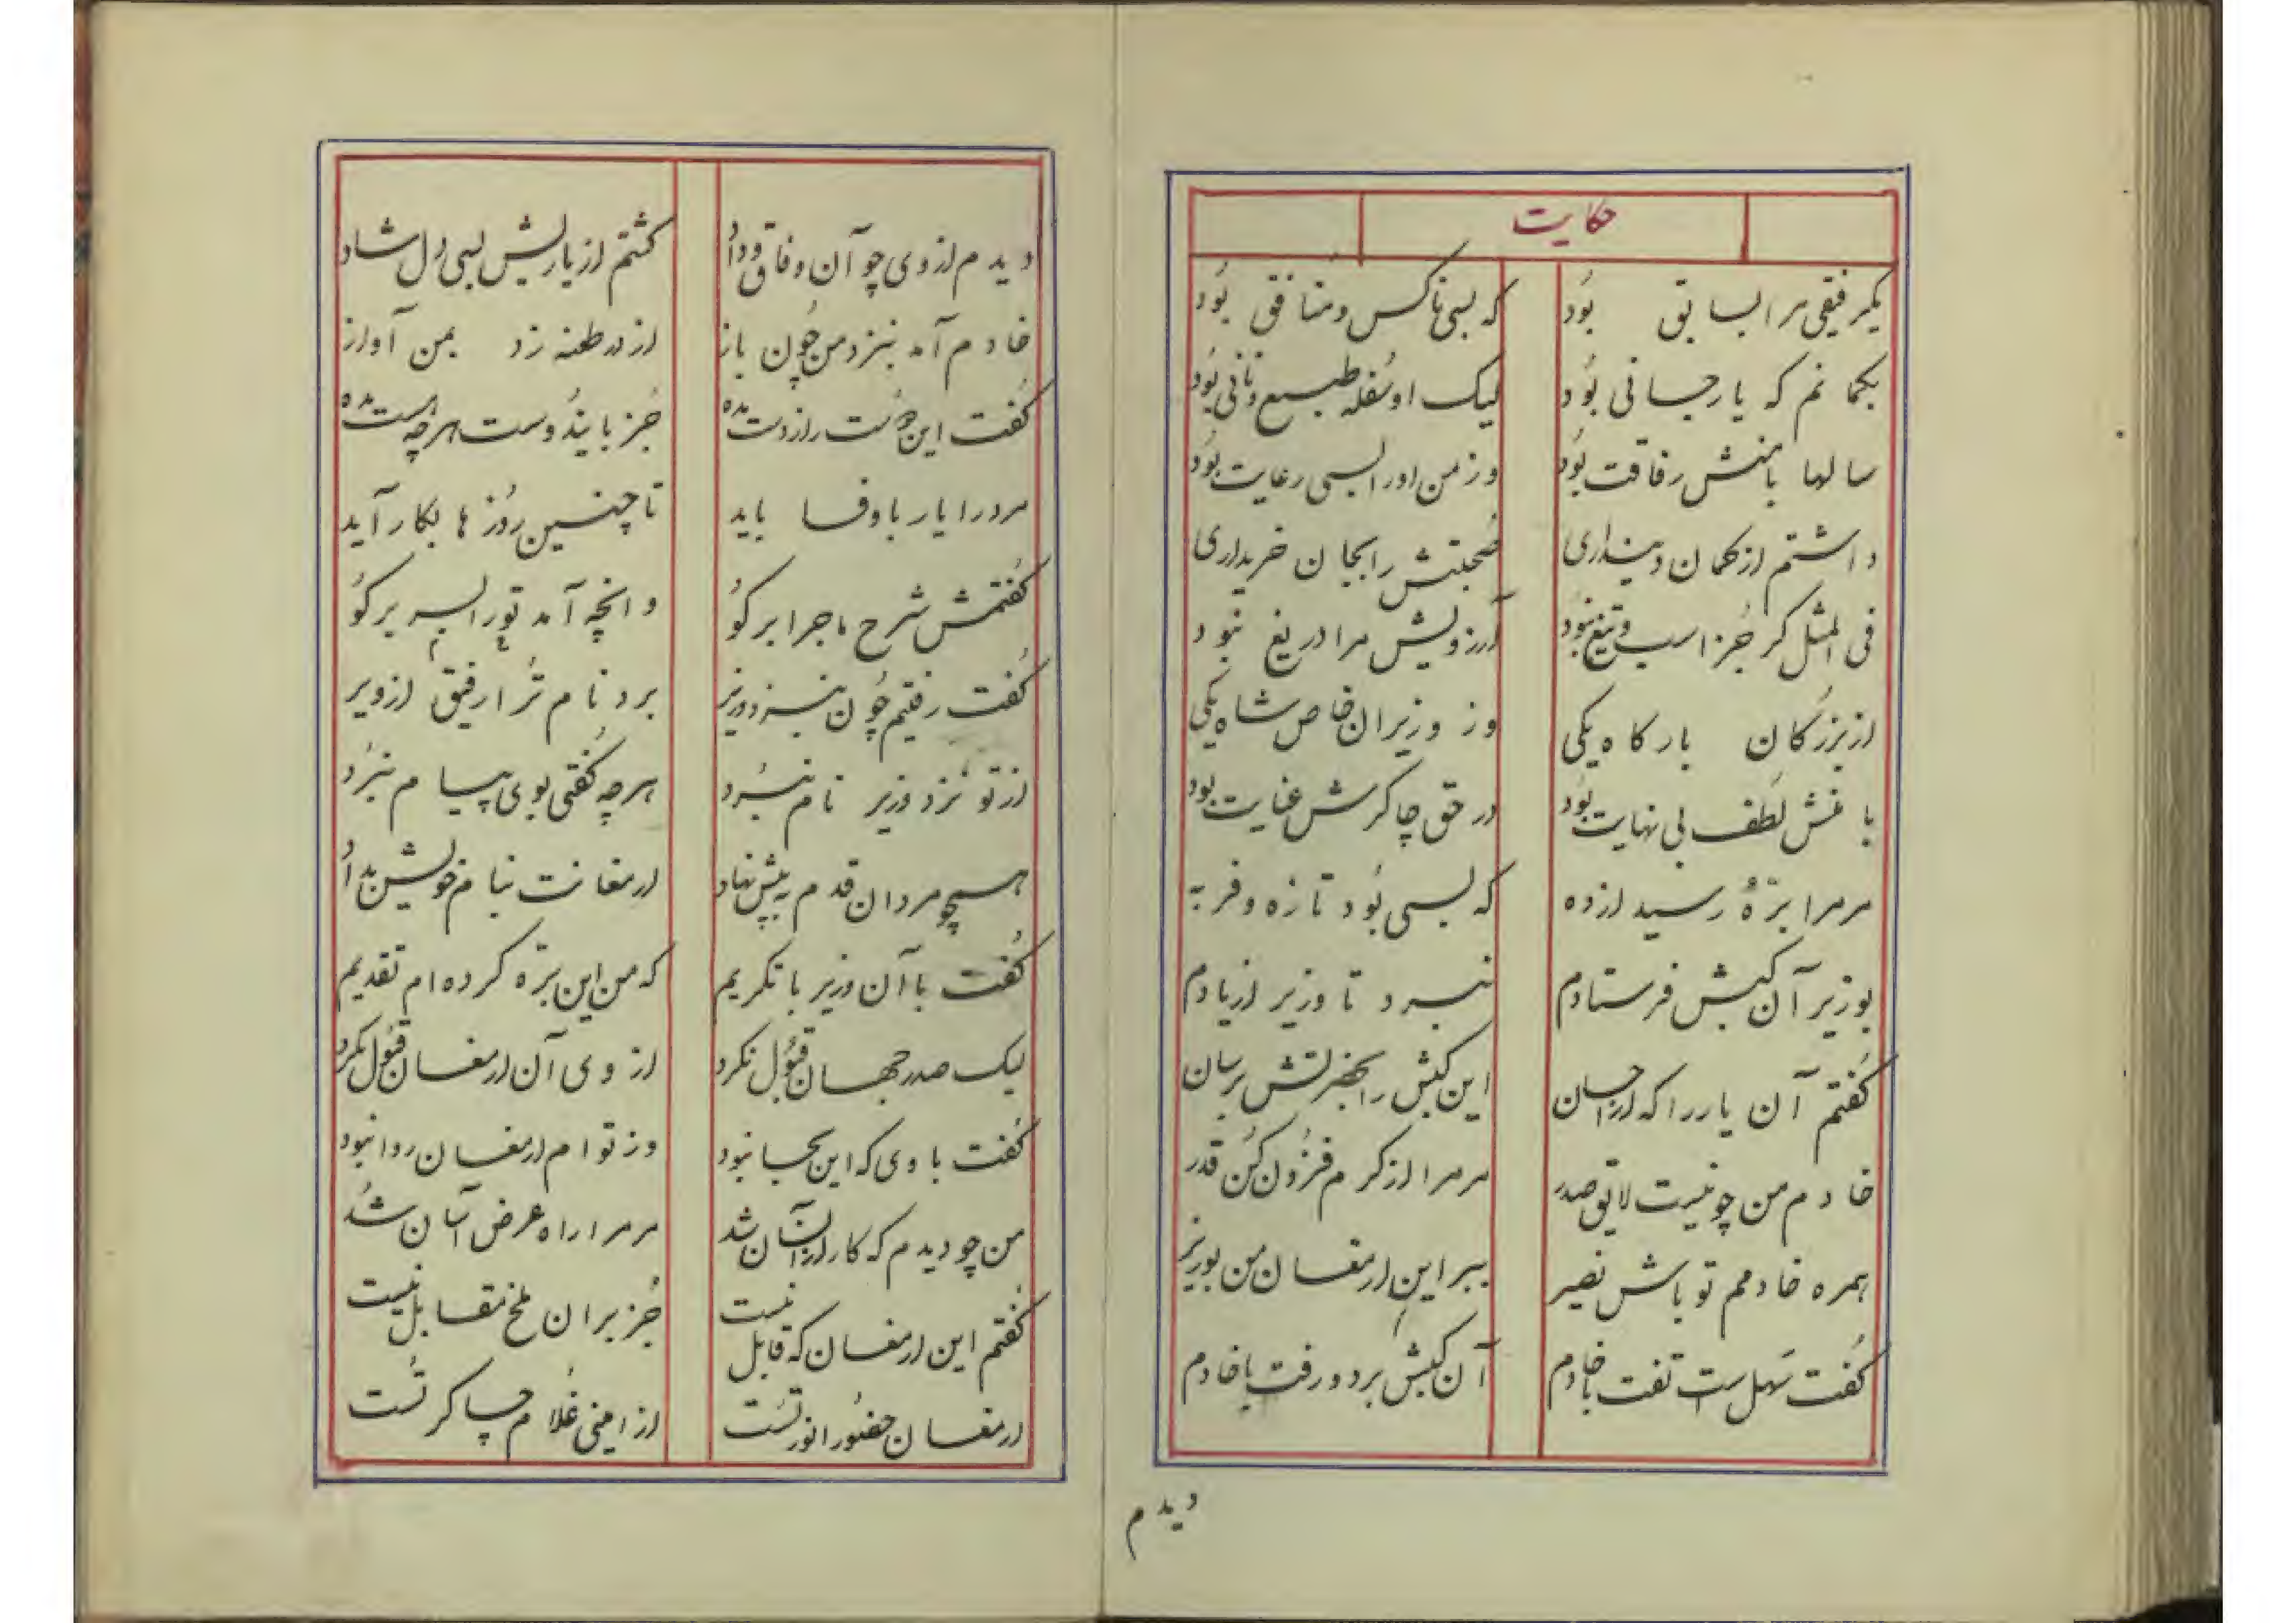 حکایت
یکرفیقی مرا بسابق بُود
که بسی ناکس و منافق بُود
بگمانم که یار جانی بُود
لیک او سُفله طبع و نانی بُود
سالها با منش رفاقت بُود
وز من او را بسی رعایت بُود
داشتم از گمان دینداری
صُحبتش را بجان خریداری
فی المثل گر جُز اسب و تیغ نبُود
آرزویش مرا دریغ نبود
از بزرگان بارگاه یکی
وز وزیران خاص شاه یکی
با منش لُطف بی نهایت بُود
در حق چاکرش عنایت بود
مر مرا برّهٔ رسید از ده
که بسی بُود تازه و فربه
بوزیر آن کبش فرستادم
نبرد تا وزیر از یادم
گفتم آن یار را که از احسان
این کبش را بحضرتش برسان
خادم من چو نیست لایق صدر
مر مرا از کرم فزُون کُن قدر
همره خادمم تو باش نصیر
ببر این ارمغان من بوزیر
گفت سَهل است تفت با خادم
آن کبش برد و رفت با خادم
دیدم
دیدم از وی چو آن وفاق و وداد
گشتم از یاریش بسی دل شاد
خادم آمد بنزد من چُون باز
از در طعنه زد بمن آواز
گفت این دُوست را ز دست مده
جُز باینُدوست هرچه هست مده
مرد را یار باوفا باید
تا چنین رُوز ها بکار آید
گفتمش شرح ماجرا برگو
وانچه آمد تو را بسر برگو
گفت رفتیم چُون بنزد وزیر
برد نام تُرا رفیق از ویر
از تو نزد وزیر نام نبُرد
هرچه گفتی بوی پیام نبرُد
همچو مردان قدم به پیش نهاد
ارمغانت بنام خویش بداد
گفت با آن وزیر با تکریم
که من این برّه کرده ام تقدیم
لیک صدر جهان قبُول نکرد
از وی آن ارمغان قبُول نکرد
گفت با وی که این بجا نبود
وز تو ام ارمغان روا نبود
من چو دیدم که کار از آنسان شد
مر مرا راه عرض آسان شد
گفتم این ارمغان که قابل نیست
جُز بران ملخ مقابل نیست
ارمغان حضُور انور تست
از امینی غُلام چاکر تُست